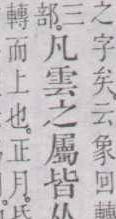 之字矣云象回轉
三部。凡雲之屬皆从
轉而上也。正月。